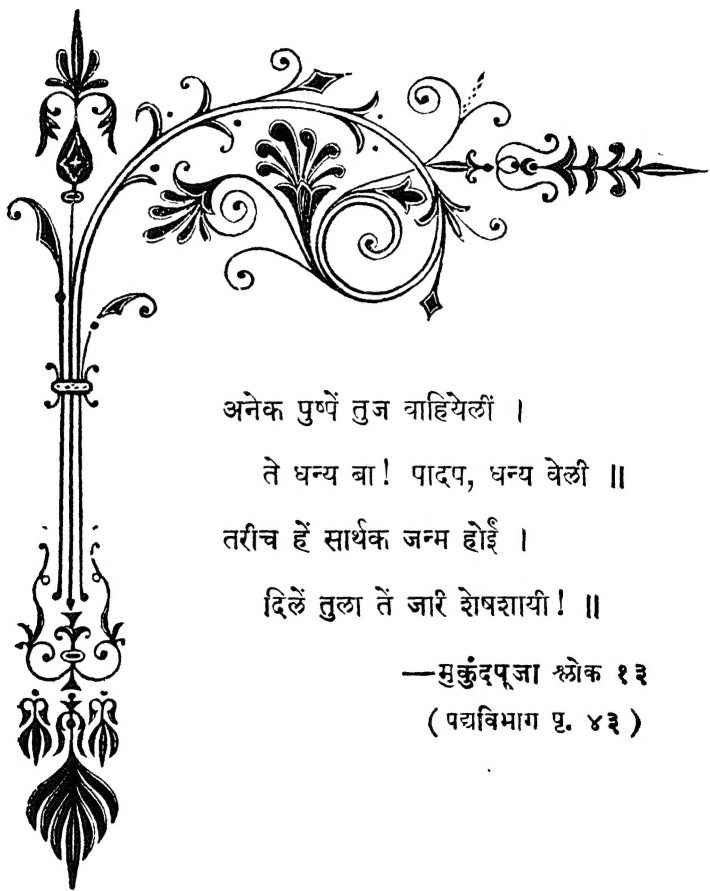 अनेक पुष्पें तुज वाहियेलीं ।
ते धन्य बा! पादप, धन्य वेली ॥
तरीच हें सार्थक जन्म होईं ।
दिलें तुला तें जारं शेषशायी! ॥
—मुकुंदपूजा श्लोक १३
(पद्यविभाग पृ. ४३)